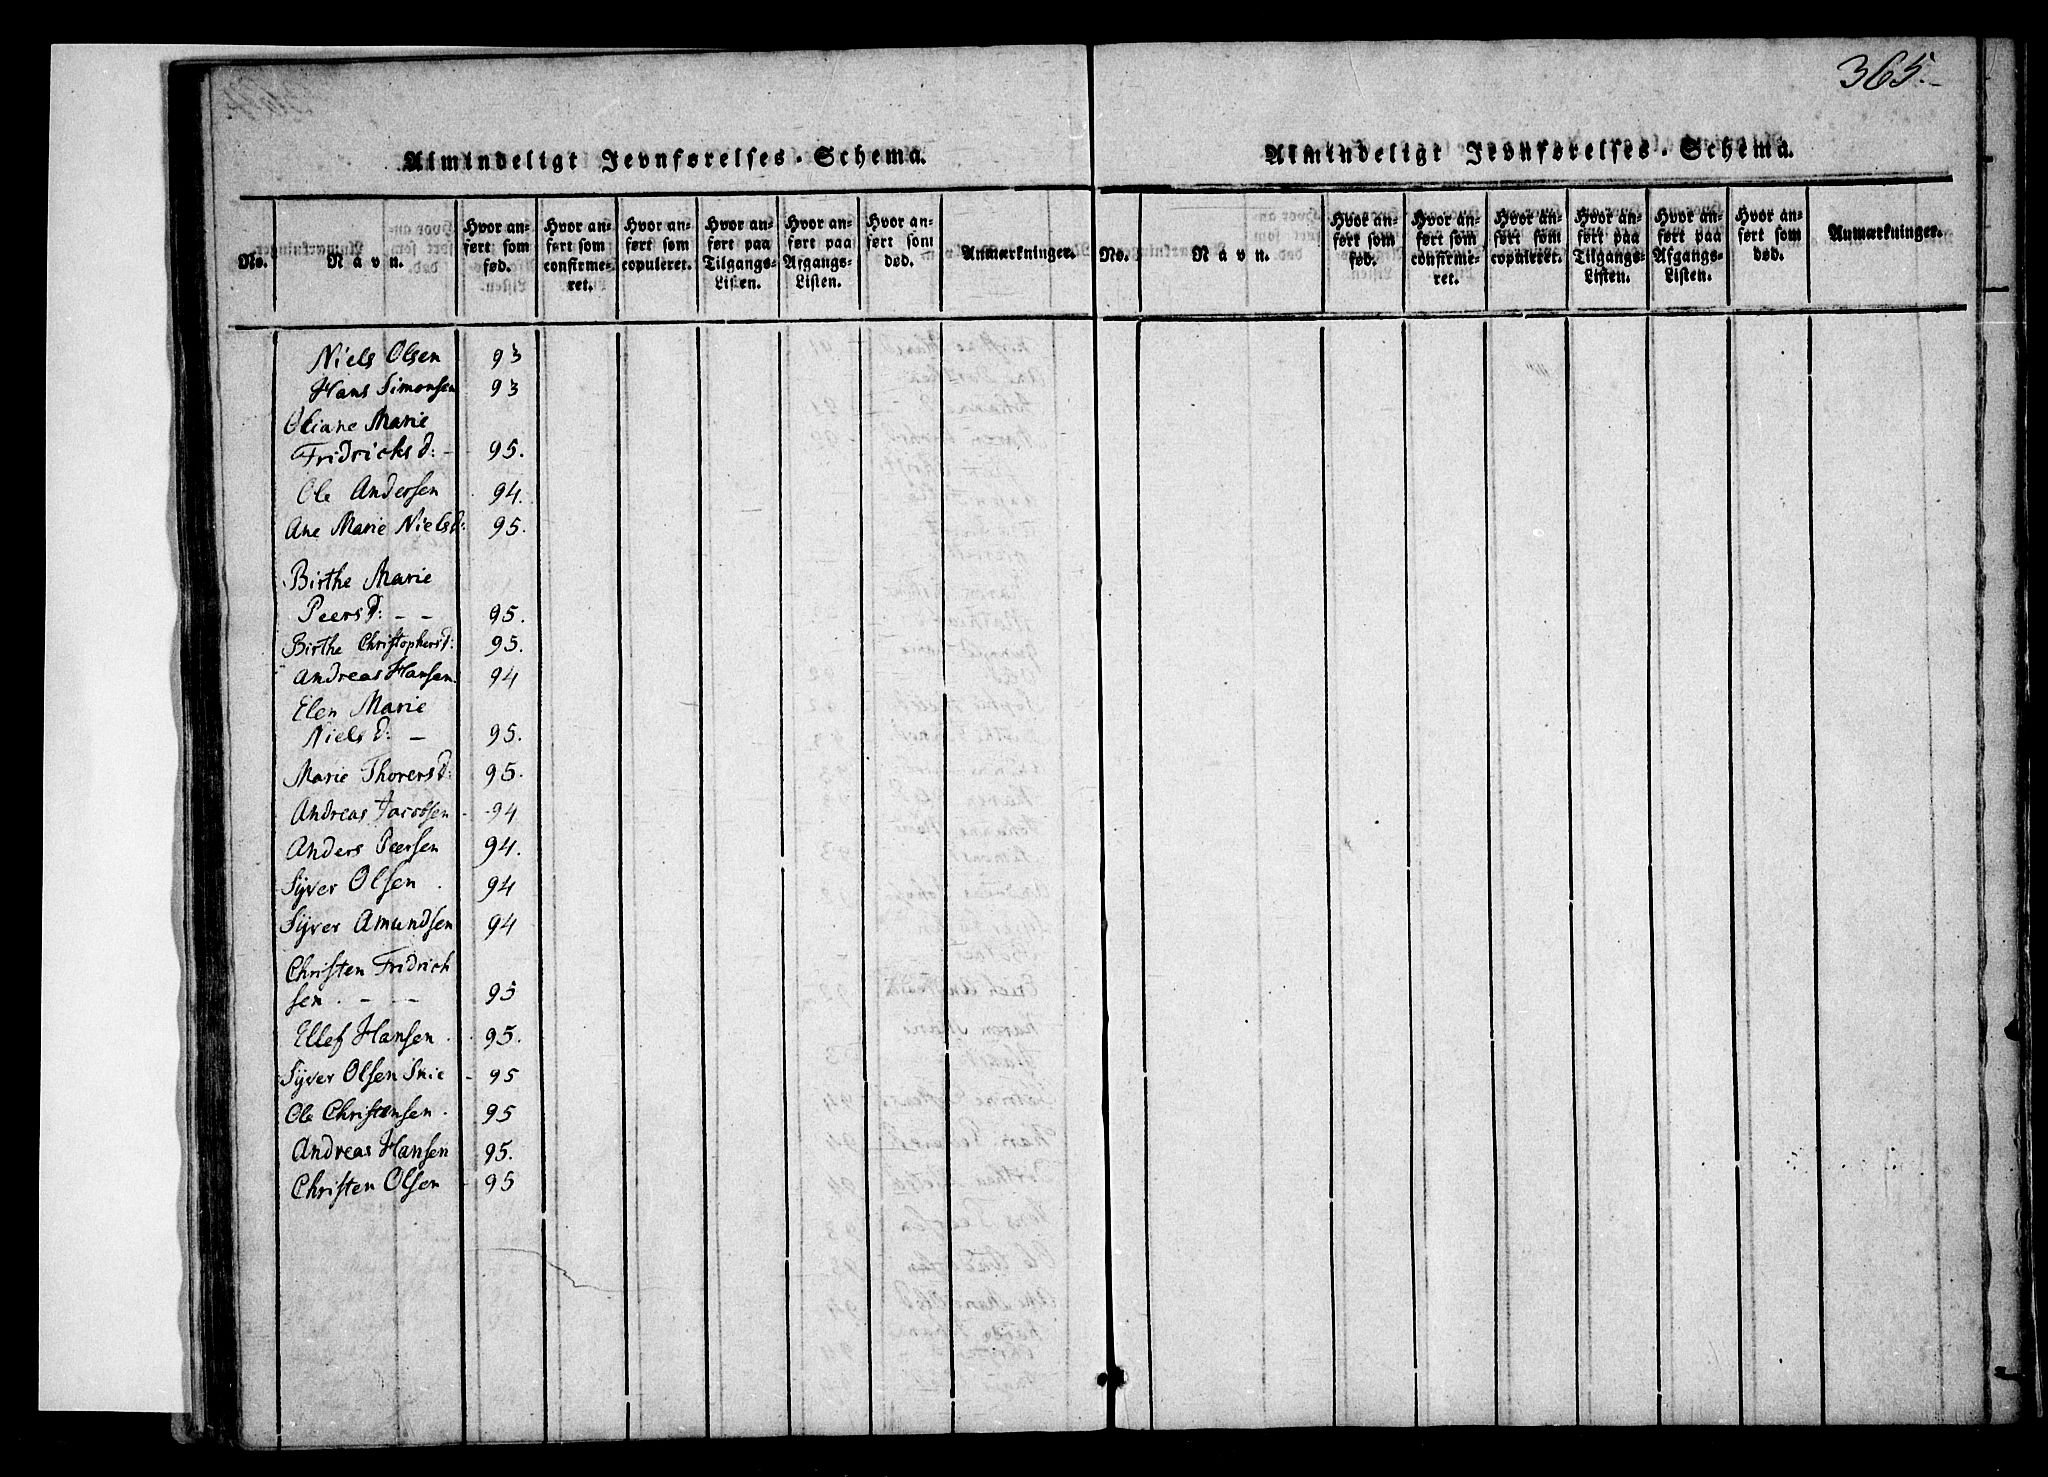 365.
Almindeligt Jevnførelses-Schema.
No.
Navn.
Hvor anført som fød.
Hvor anført som confirmeret.
Hvor anført som copuleret.
Hvor anført paa Tilgangs-Listen.
Hvor anført paa Afgangs-Listen.
Hvor anført som død.
Anmærkninger.
Niels Olsen 93
Hans Simonsen 93
Oliane Marie
Fridricksd: - 95.
Ole Andersen 94.
Ane Marie Nielsd: 95.
Birthe Marie
Peersd: - - 95.
Birthe Christophersd: 95.
Andreas Hansen. 94
Elen Marie
Nielsd: - 95.
Marie Thorersd: 95.
Andreas Jacobsen - 94
Anders Peersen 94.
Syver Olsen . 94
Syver Amundsen 94
Christen Fridrich
sen. - - 95
Ellef Hansen . 95.
Syver Olsen Snie - 95
Ole Christensen . 95
Andreas Hansen 95.
Christen Olsen - 95
Almindeligt Jevnførelses-Schema.
No.
Navn.
Hvor anført som fød.
Hvor anført som confirmeret.
Hvor anført som copuleret.
Hvor anført paa Tilgangs-Listen.
Hvor anført paa Afgangs-Listen.
Hvor anført som død.
Anmærkninger.